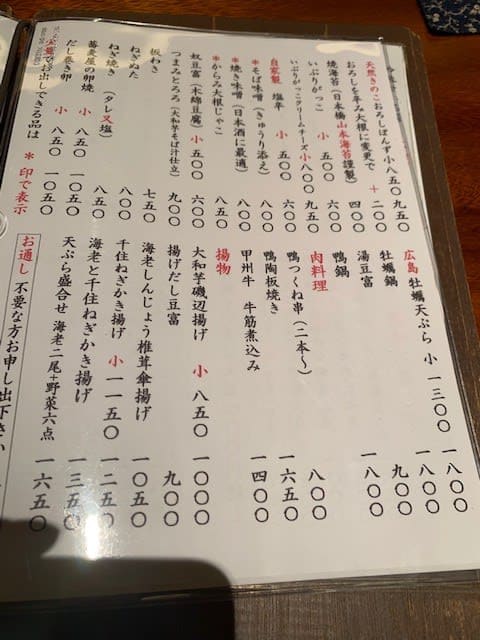 天然きのこおろしぽんず 小 八五〇 九五〇
おろしを辛み大根に変更で ＋二〇〇
焼海苔(日本橋山本海苔謹製) 四〇〇
いぶりがっこ 六〇〇
いぶりがっこクリームチーズ 小 八〇〇 九五〇
自家製 塩辛 小 五〇〇 六〇〇
＊そば味噌(きゅうり添え) 九〇〇
＊焼き味噌(日本酒に最適) 八〇〇
＊からみ大根じゃこ 八五〇
奴豆富(木綿豆腐) 小 五〇〇 六〇〇
つまみとろろ(大和芋そば汁仕立) 九〇〇
板わさ 七五〇
ねぎぬた 八〇〇
ねぎ焼き(タレ又塩) 八五〇
蕎麦屋の卵焼 小 八五〇 一〇五〇
だし巻き卵 小 八五〇 一〇五〇
でお出しできる品は ＊印で表示
広島 牡蠣天ぷら 小 一三〇〇 一八〇〇
牡蠣鍋 一八〇〇
湯豆富 九〇〇
鴨鍋 一八〇〇
肉料理
鴨つくね串(二本〜) 八〇〇
鴨陶板焼き 一六五〇
甲州牛 牛筋煮込み 一四〇〇
揚物
大和芋磯辺揚げ 小 八五〇 一〇〇〇
揚げだし豆富 九〇〇
海老しんじょう椎茸傘揚げ 一〇五〇
千住ねぎかき揚げ 小 一一五〇 一二五〇
海老と千住ねぎかき揚げ 一三五〇
天ぷら盛合せ 海老二尾＋野菜六点 一六五〇
お通し 不要な方お申し出下さい